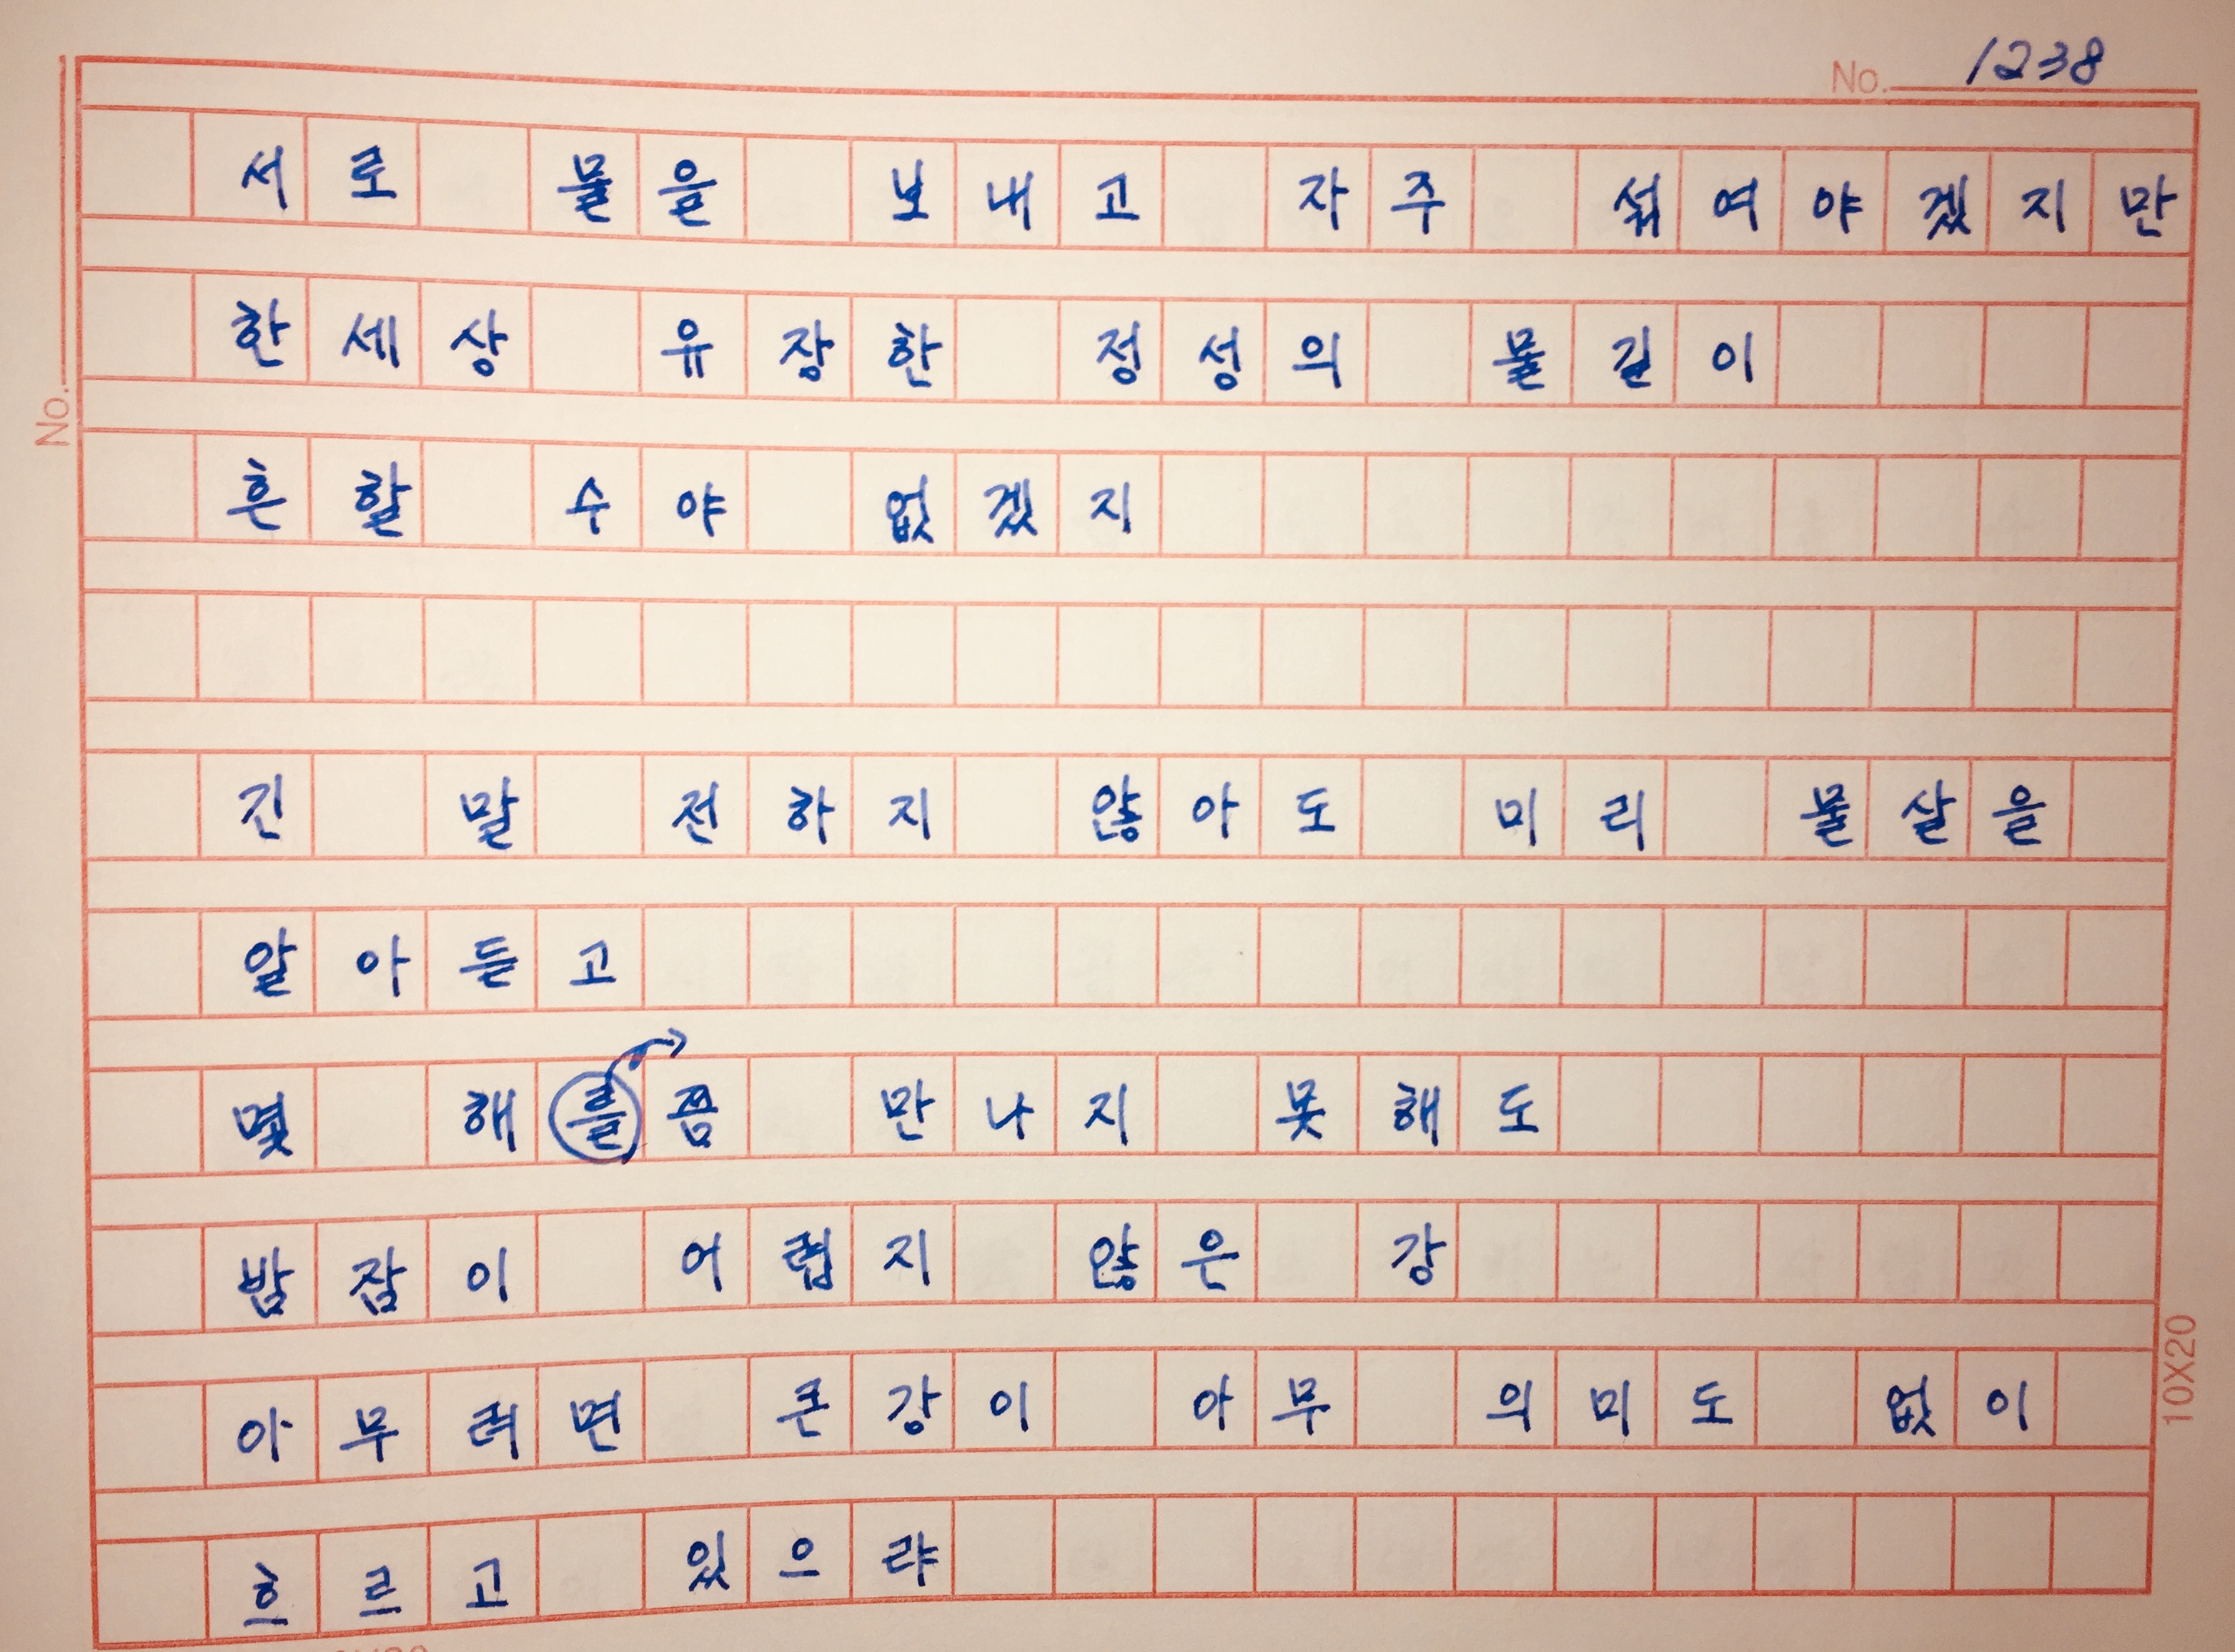 No. 1238
서로 물을 보내고 자주 섞여야겠지만
한세상 유장한 정성의 물길이
흔할 수야 없겠지
긴 말 전하지 않아도 미리 물살을
알아듣고
몇 해를쯤 만나지 못해도
밤잠이 어렵지 않은 강
아무려면 큰강이 아무 의미도 없이
흐르고 있으랴
No.
10X20